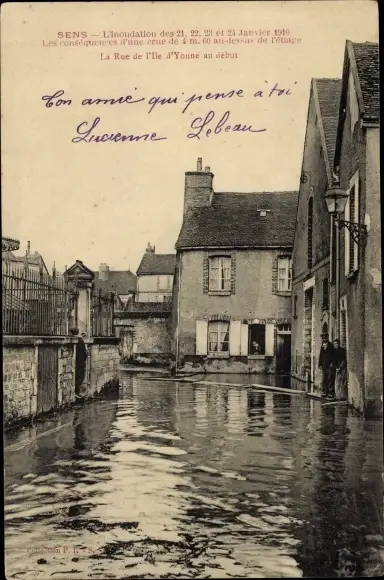 SENS — L'Inondation des 21, 22, 23 et 24 Janvier 1910
Les conséquences d'une crue de 4 m. 60 au-dessus de l'étiage
La Rue de l'Ile d'Yonne au début
Ton amie qui pense à toi
Lucienne Lebeau
Collection P. R. - S.